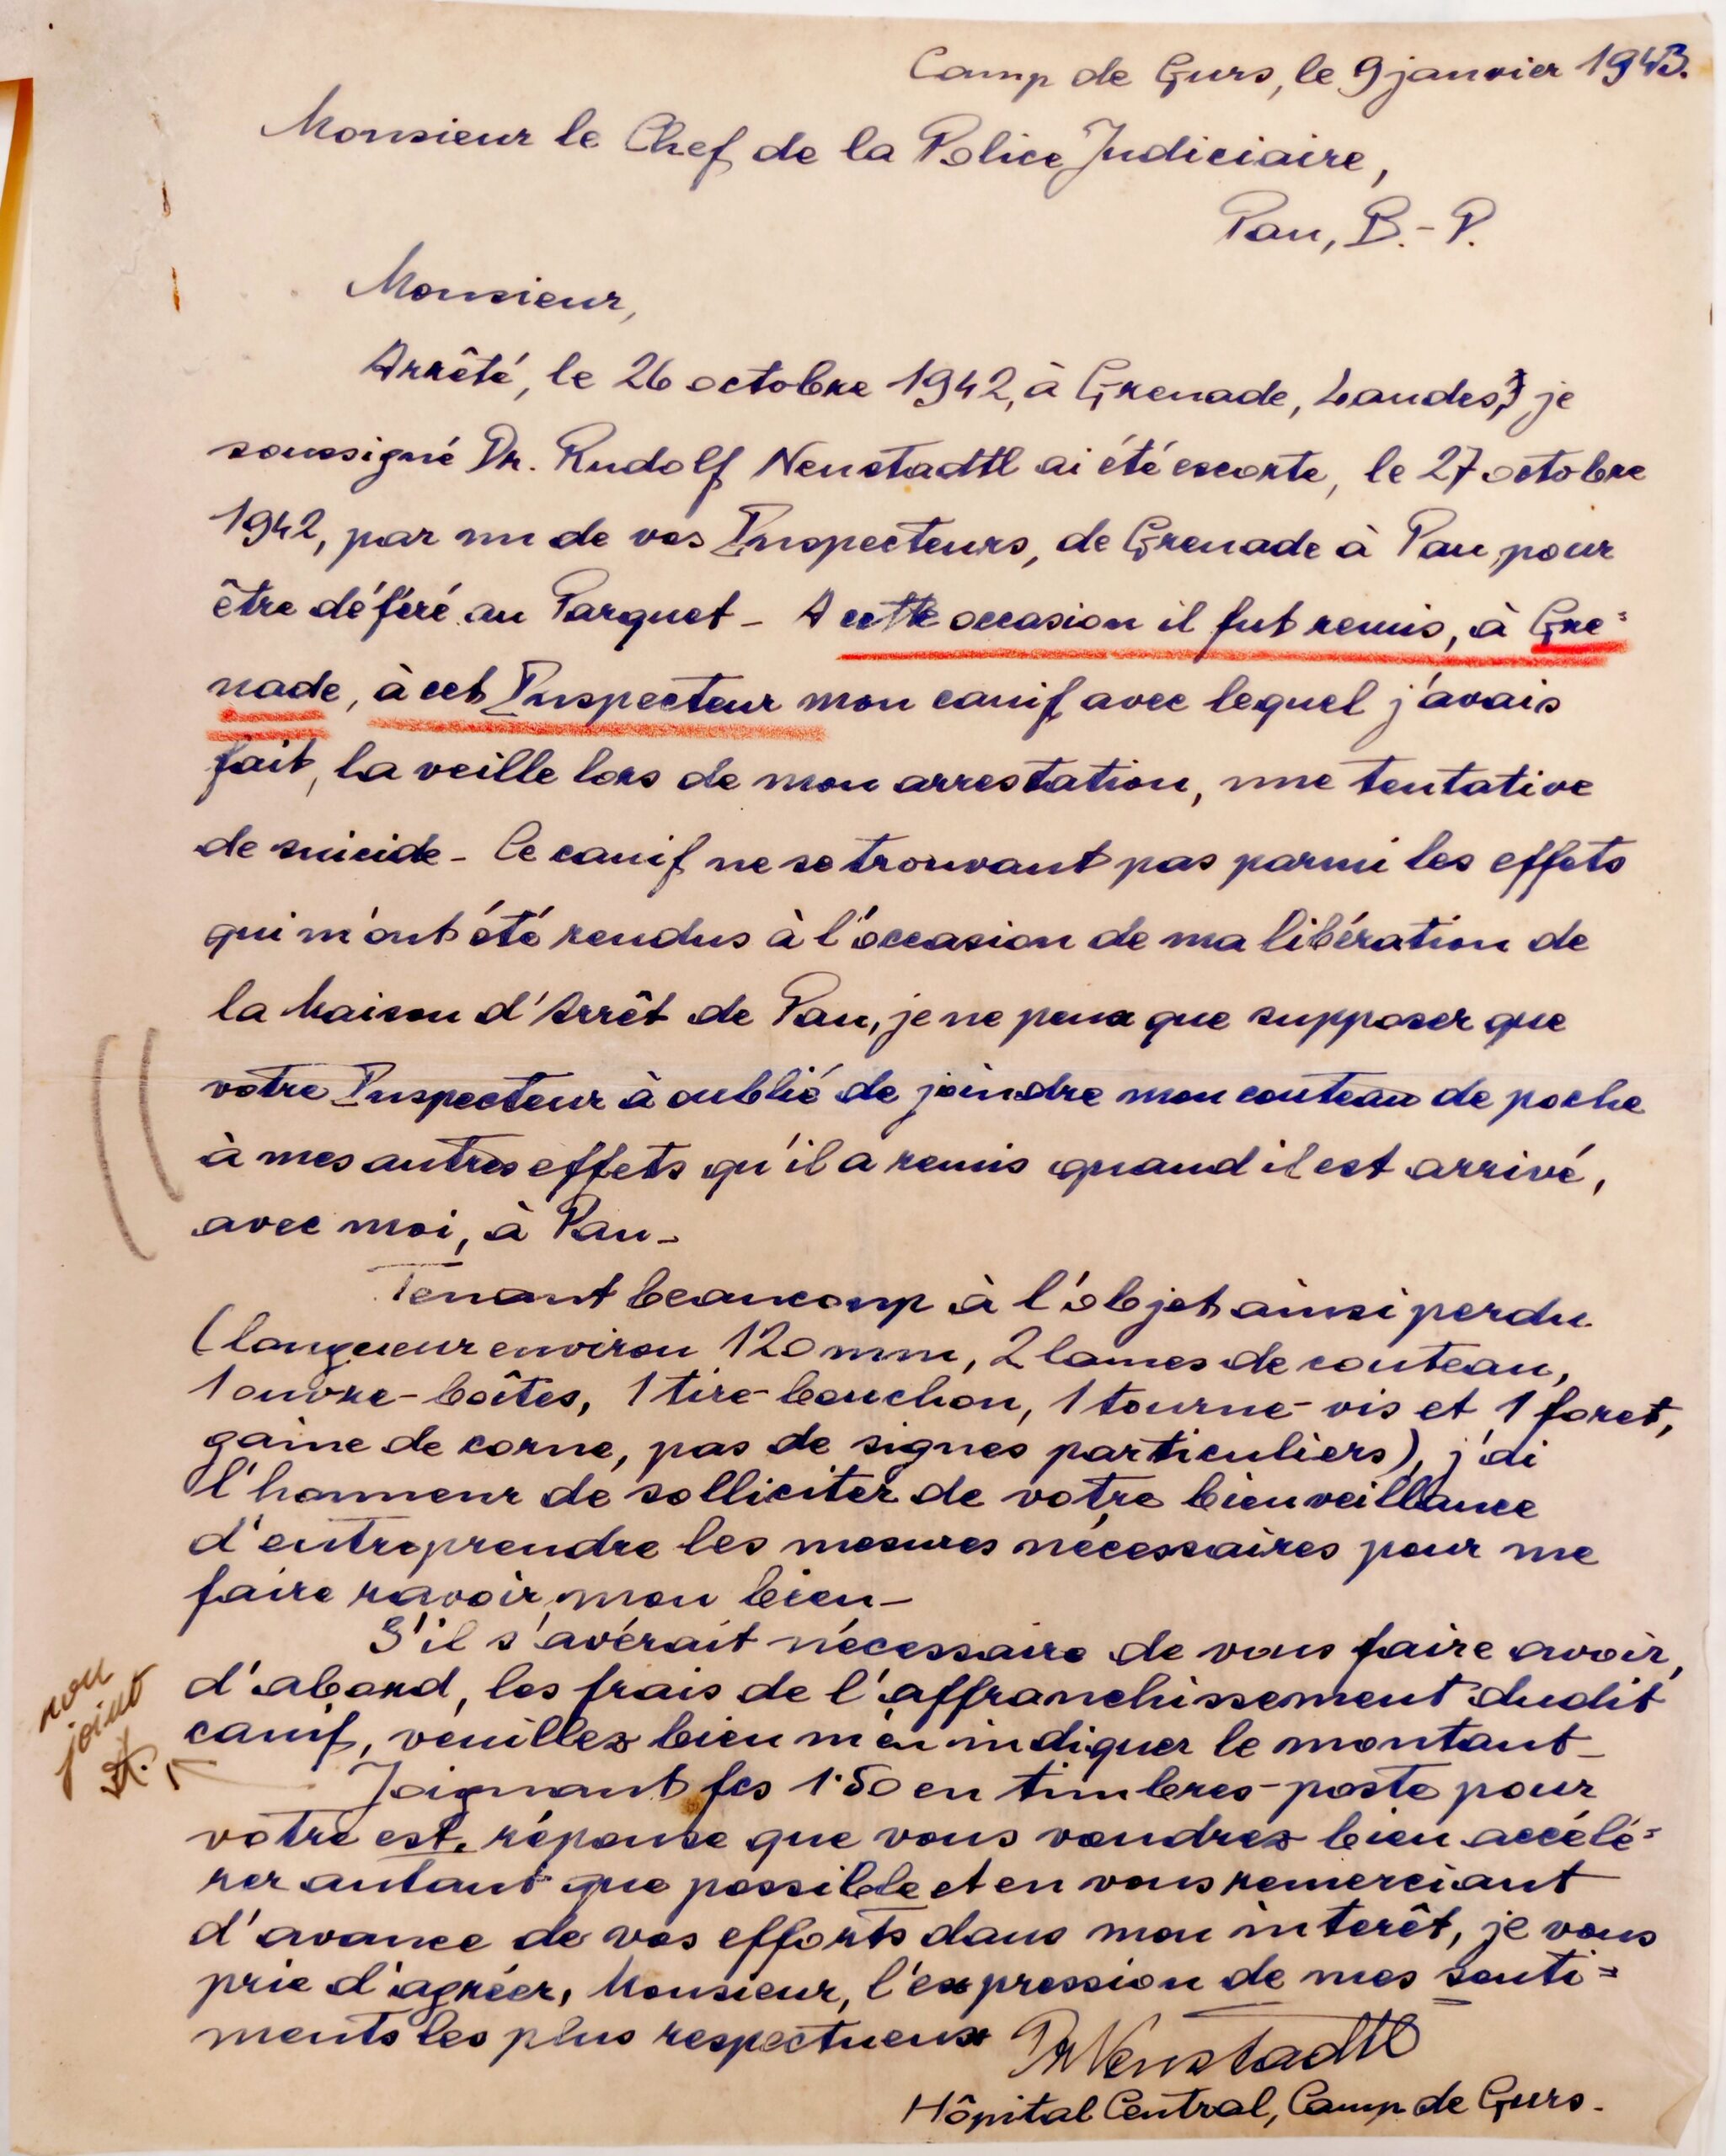 Camp de Gurs, le 9 janvier 1943.
Monsieur le Chef de la Police Judiciaire,
Pau, B.-P.
Monsieur,
Arrêté, le 26 octobre 1942, à Grenade, Landes, je
soussigné Dr. Rudolf Neustadtl ai été escorte, le 27 octobre
1942, par un de vos Inspecteurs, de Grenade à Pau pour
être déféré au Parquet - A cette occasion il fut remis, à Gre=
nade, à cet Inspecteur mon canif avec lequel j'avais
fait, la veille lors de mon arrestation, une tentative
de suicide - Ce canif ne se trouvant pas parmi les effets
qui m'ont été rendus à l'occasion de ma libération de
la Maison d'Arrêt de Pau, je ne peux que supposer que
votre Inspecteur à oublié de joindre mon couteau de poche
à mes autres effets qu'il a remis quand il est arrivé,
avec moi, à Pau -
Tenant beaucoup à l'objet ainsi perdu
(longueur environ 120 mm, 2 lames de couteau,
1 ouvre-boîtes, 1 tire-bouchon, 1 tourne-vis et 1 foret,
gaine de corne, pas de signes particuliers), j'ai
l'honneur de solliciter de votre bienveillance
d'entreprendre les mesures nécessaires pour me
faire ravoir mon bien -
S'il s'avérait nécessaire de vous faire avoir,
d'abord, les frais de l'affranchissement dudit
canif, veuillez bien m'en indiquer le montant -
non
joint
Joignant fcs 1·50 en timbres-poste pour
votre est. réponse que vous voudrez bien accélé=
rer autant que possible et en vous remerciant
d'avance de vos efforts dans mon intérêt, je vous
prie d'agréer, Monsieur, l'expression de mes senti=
ments les plus respectueux
Dr Neustadtl
Hôpital Central, Camp de Gurs.